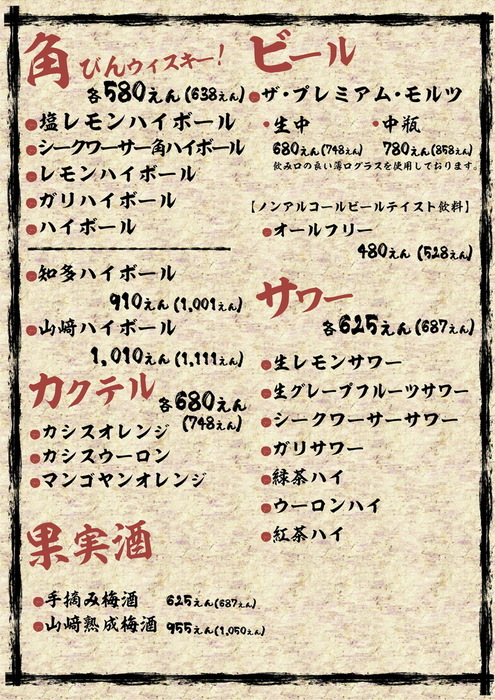 角 びんウィスキー！
各580えん(638えん)
●塩レモンハイボール
●シークワーサー角ハイボール
●レモンハイボール
●ガリハイボール
●ハイボール
●知多ハイボール
910えん(1,001えん)
●山﨑ハイボール
1,010えん(1,111えん)
カクテル 各680えん
(748えん)
●カシスオレンジ
●カシスウーロン
●マンゴヤンオレンジ
果実酒
●手摘み梅酒 625えん(687えん)
●山﨑熟成梅酒 955えん(1,050えん)
ビール
●ザ・プレミアム・モルツ
●生中 ●中瓶
680えん(748えん) 780えん(858えん)
飲み口の良い薄口グラスを使用しております。
【ノンアルコールビールテイスト飲料】
●オールフリー
480えん(528えん)
サワー
各625えん(687えん)
●生レモンサワー
●生グレープフルーツサワー
●シークワーサーサワー
●ガリサワー
●緑茶ハイ
●ウーロンハイ
●紅茶ハイ